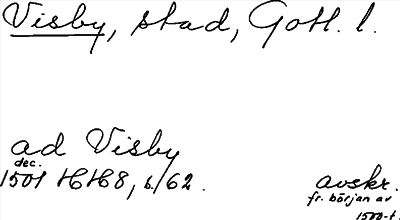 Visby, stad, Gotl. l.
ad Visby
dec.
1501 HH8, s/62.
avskr.
fr. början av
1500-t.